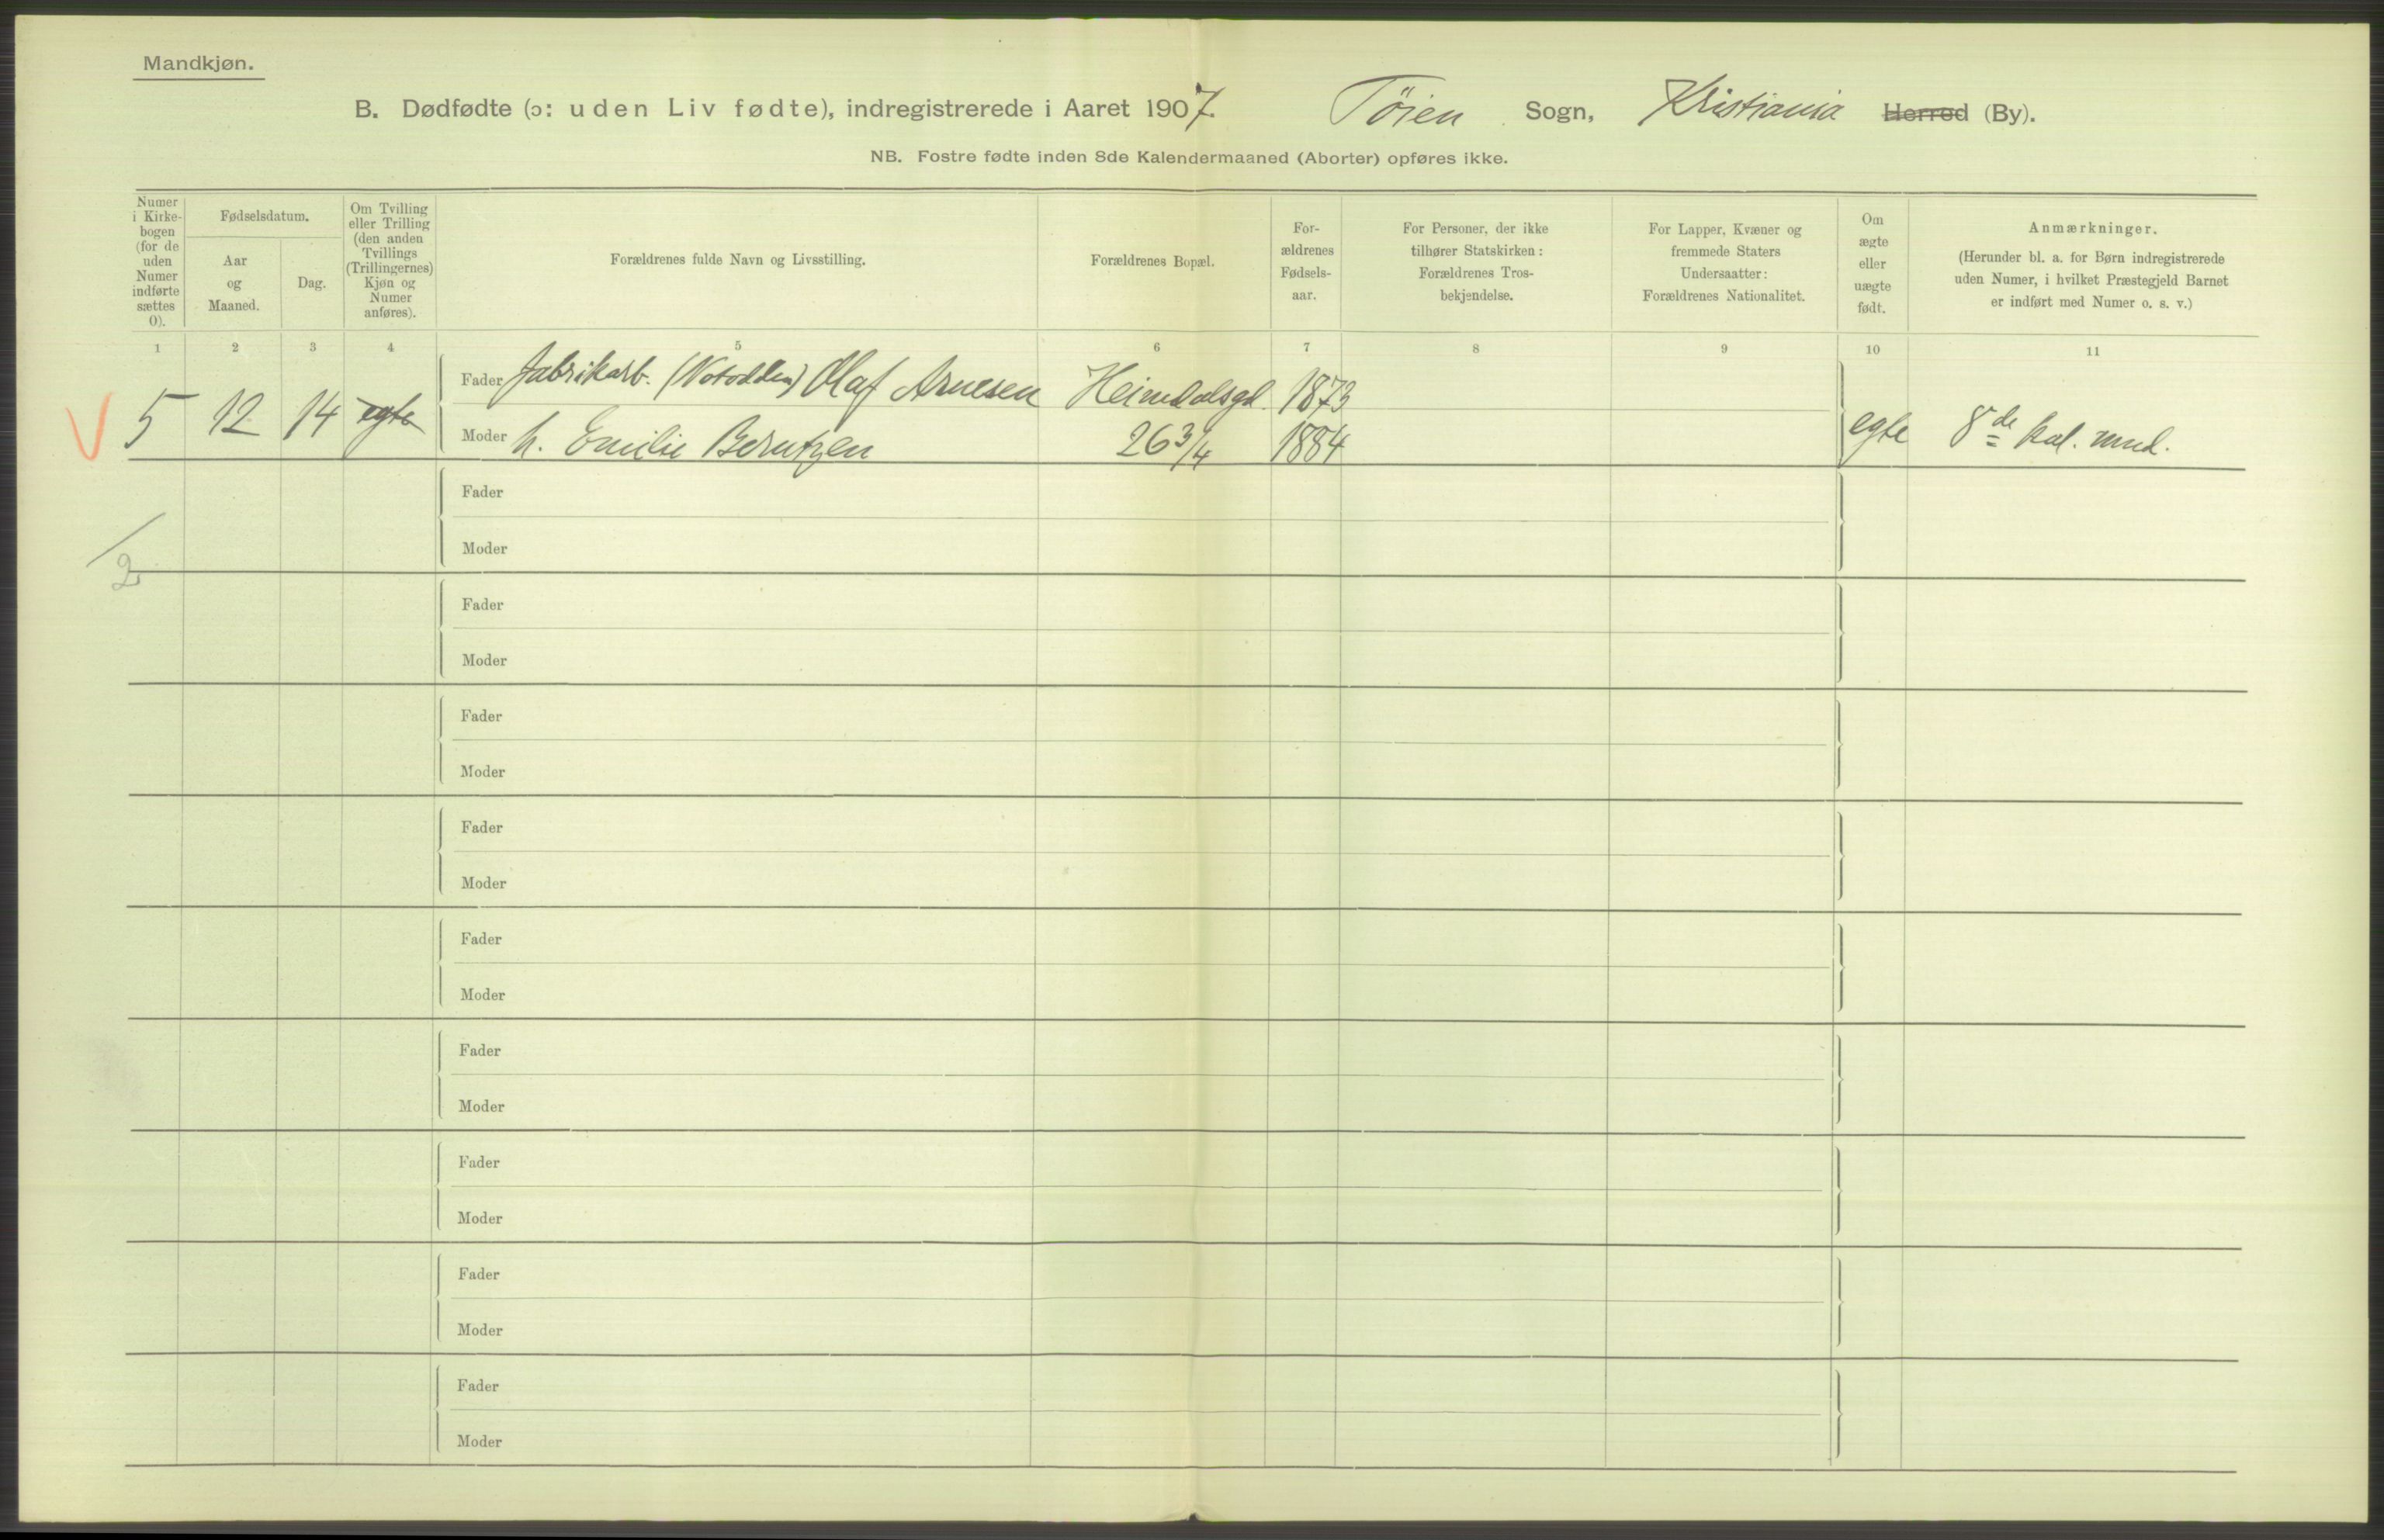 Mandkjøn.
B. Dødfødte (ɔ: uden Liv fødte), indregistrerede i Aaret 1907. Töien Sogn, Kristiania Herred (By).
NB. Fostre fødte inden 8de Kalendermaaned (Aborter) opføres ikke.
Numer
i Kirke-
bogen
(for de
uden
Numer
indførte
sættes
0).
Fødselsdatum.
Aar
og
Maaned.
Dag.
Om Tvilling
eller Trilling
(den anden
Tvillings
(Trillingernes)
Kjøn og
Numer
anføres).
Forældrenes fulde Navn og Livsstilling.
Forældrenes Bopæl.
For-
ældrenes
Fødsels-
aar.
For Personer, der ikke
tilhører Statskirken:
Forældrenes Tros-
bekjendelse.
For Lapper, Kvæner og
fremmede Staters
Undersaatter:
Forældrenes Nationalitet.
Om
ægte
eller
uægte
født.
Anmærkninger.
(Herunder bl. a. for Børn indregistrerede
uden Numer, i hvilket Præstegjeld Barnet
er indført med Numer o. s. v.)
1 2 3 4 5 6 7 8 9 10 11
Fader fabrikarb. (Notodden) Olaf Arnesen Heimdalsgd. 1873
V 5 12 14 egte egte 8de kal. mnd.
Moder h. Emilie Berntzen 26 3/4 1884
Fader
Moder
2
Fader
Moder
Fader
Moder
Fader
Moder
Fader
Moder
Fader
Moder
Fader
Moder
Fader
Moder
Fader
Moder